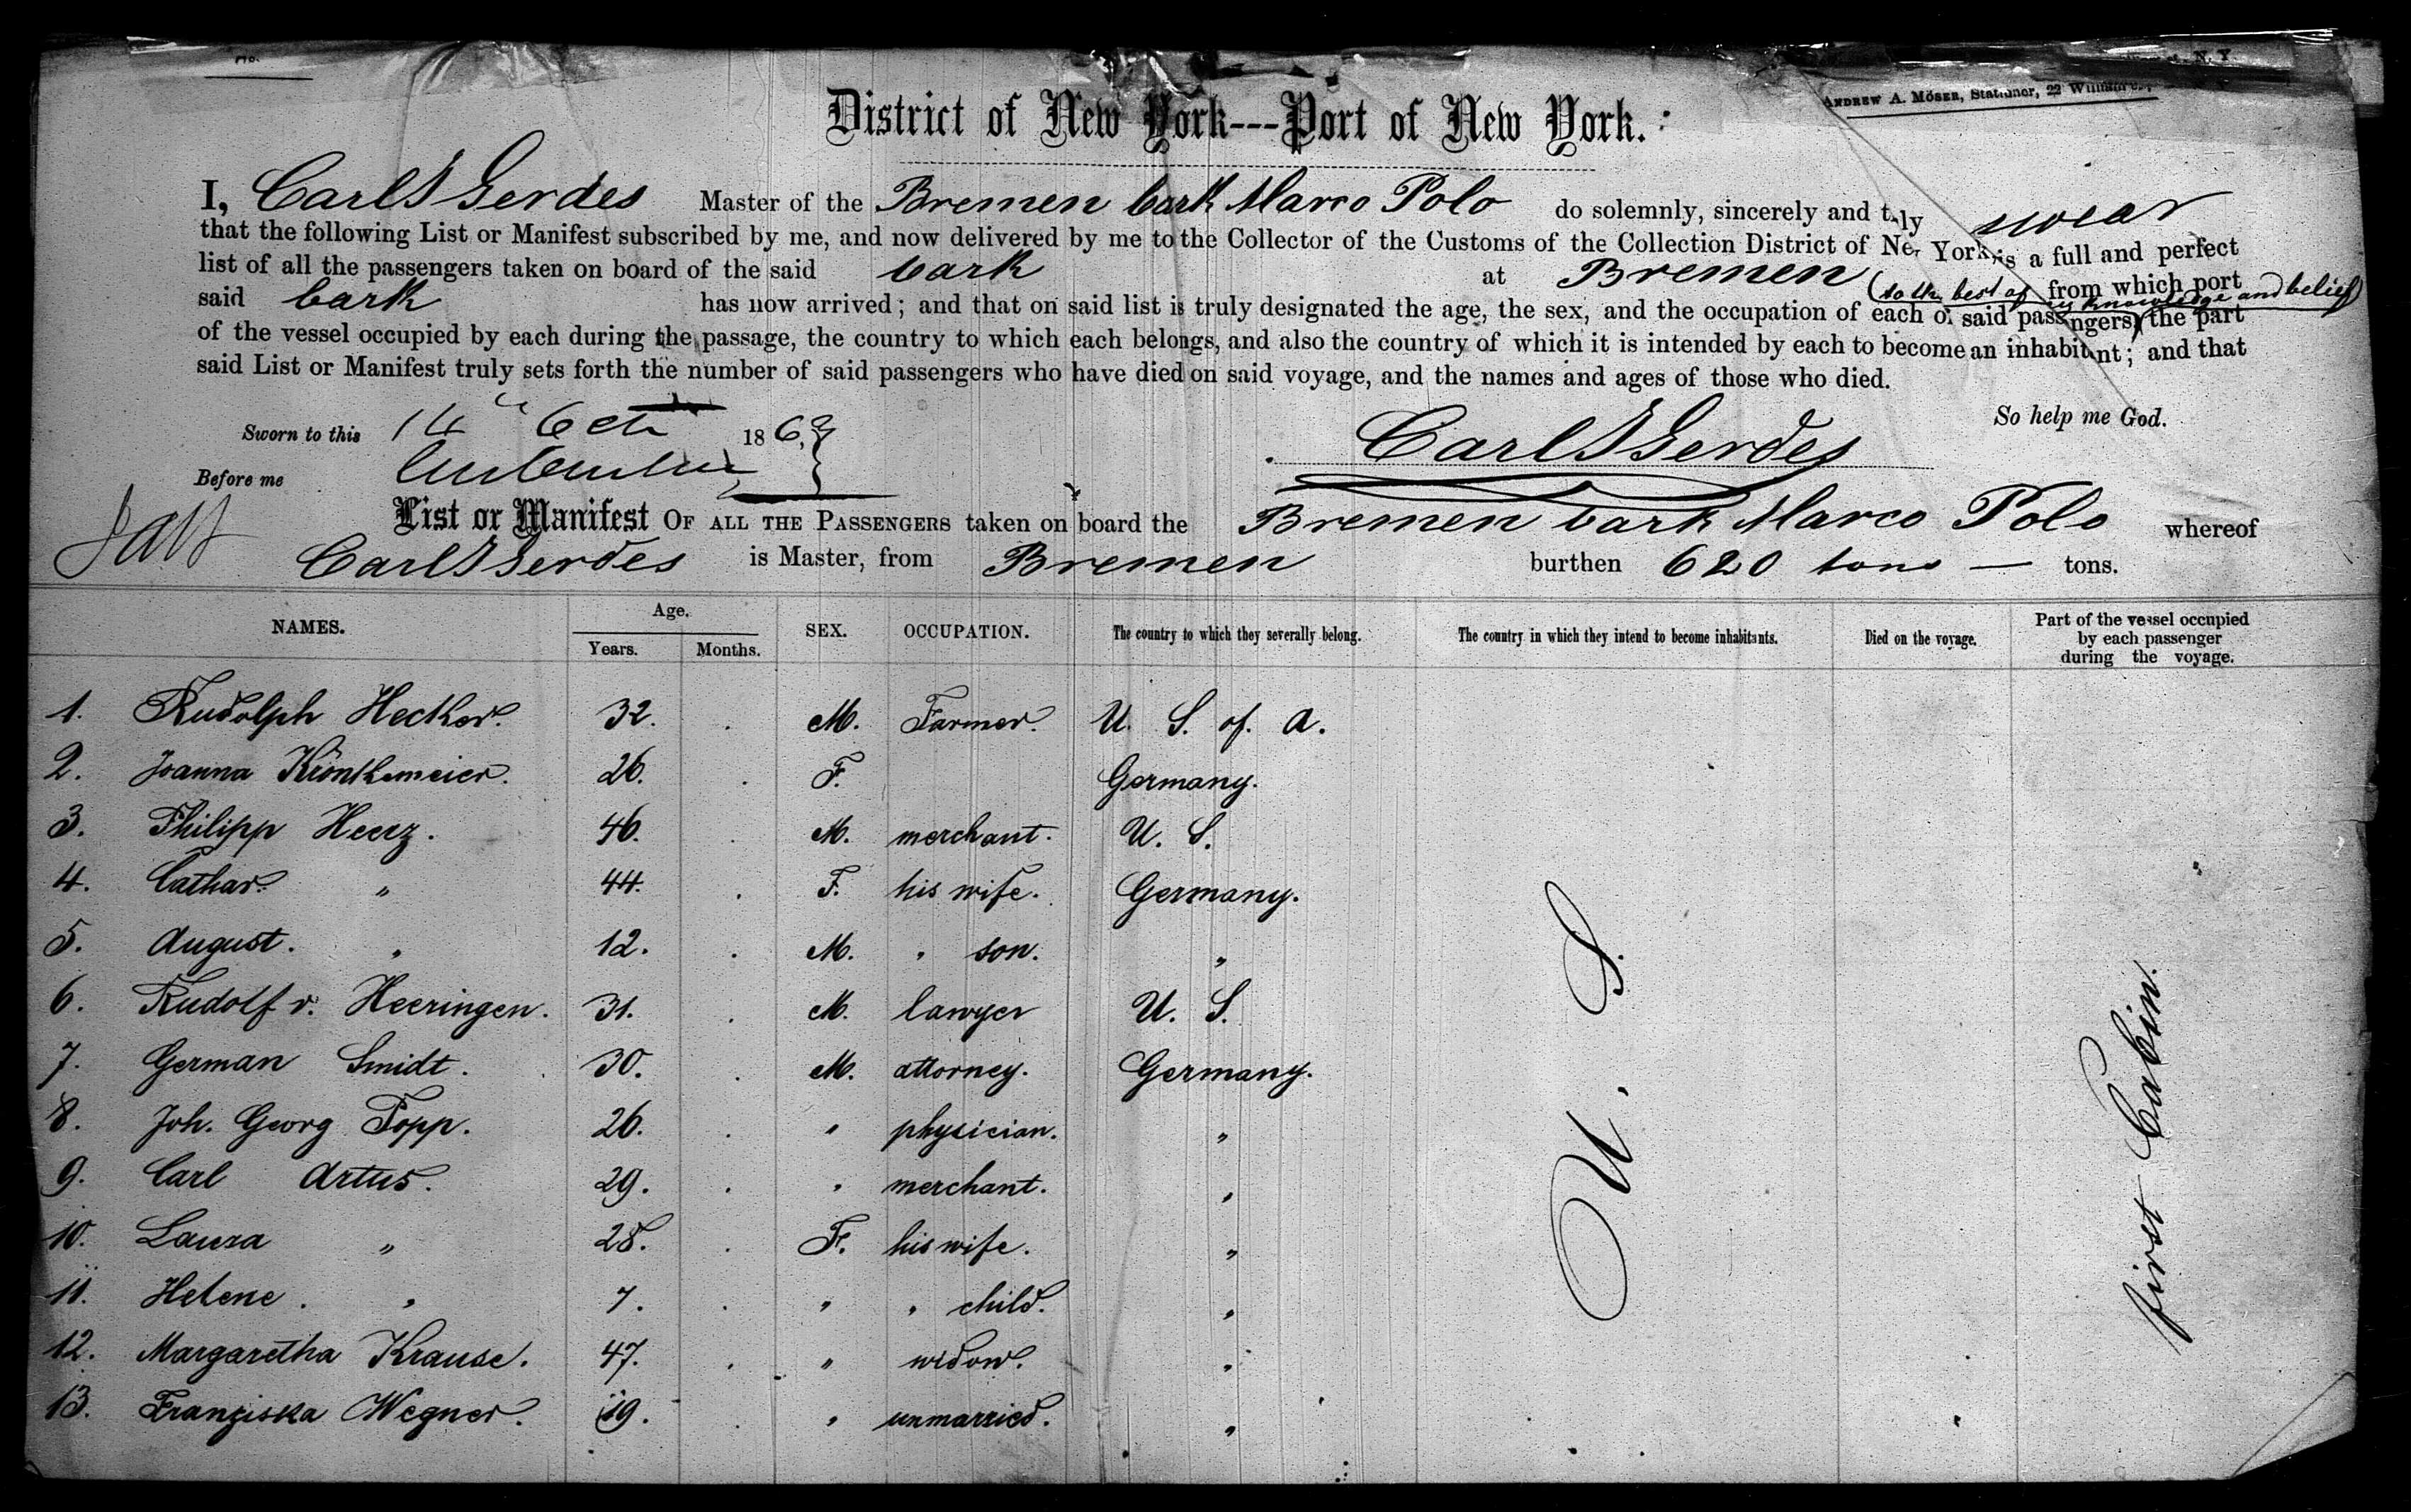 No.
N. Y.
ANDREW A. MÖSER, Stationer, 22 William
District of New York---Port of New York.
I, Carl J Gerdes Master of the Bremen bark Marco Polo do solemnly, sincerely and t ly swear
that the following List or Manifest subscribed by me, and now delivered by me to the Collector of the Customs of the Collection District of New York, is a full and perfect
list of all the passengers taken on board of the said bark at Bremen from which port
(to the best of my knowledge and belief)
said bark has now arrived; and that on said list is truly designated the age, the sex, and the occupation of each of said passengers, the part
of the vessel occupied by each during the passage, the country to which each belongs, and also the country of which it is intended by each to become an inhabitant; and that
said List or Manifest truly sets forth the number of said passengers who have died on said voyage, and the names and ages of those who died.
So help me God.
Sworn to this 14 Octr 186
Carl J Gerdes
Before me
List or Manifest OF ALL THE PASSENGERS taken on board the Bremen bark Marco Polo whereof
Carl J Gerdes is Master, from Bremen burthen 620 tons — tons.
NAMES. Age. Years. Months. SEX. OCCUPATION. The country to which they severally belong. The country in which they intend to become inhabitants. Died on the voyage. Part of the vessel occupied by each passenger during the voyage.
1. Rudolph Hecker. 32. . M. Farmer. U. S. of. A.
2. Joanna Krönkemeier. 26. . F. Germany.
3. Philipp Heerz. 46. . M. merchant. U. S.
4. Cathar. " 44. . F. his wife. Germany.
5. August. " 12. . M. " son. "
6. Rudolf v. Heeringen. 31. . M. lawyer U. S.
7. German Smidt. 30. . M. attorney. Germany.
8. Joh. Georg Topp. 26. . " physician. "
9. Carl Artus. 29. . " merchant. "
10. Laura " 28. . F. his wife. "
11. Helene. " 7. . " " child. "
12. Margaretha Krause. 47. . " widow. "
13. Franziska Wegner. 19. . " unmarried. "
U. S.
first Cabin.